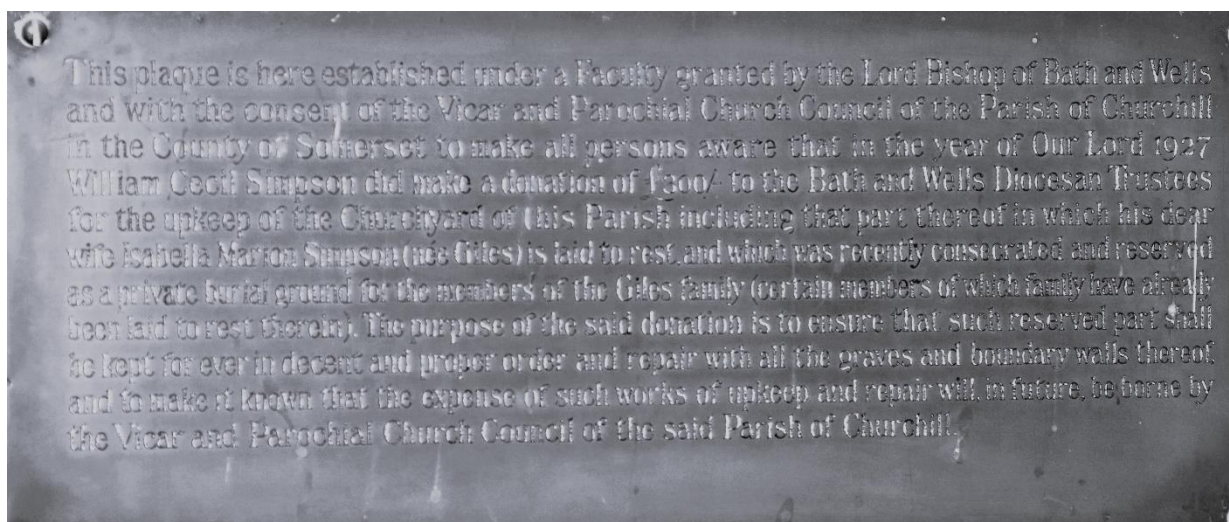 This plaque is here established under a Faculty granted by the Lord Bishop of Bath and Wells
and with the consent of the Vicar and Parochial Church Council of the Parish of Churchill
in the County of Somerset to make all persons aware that in the year of Our Lord 1927
William Cecil Simpson did make a donation of £300/- to the Bath and Wells Diocesan Trustees
for the upkeep of the Churchyard of this Parish including that part thereof in which his dear
wife Isabella Marion Simpson (née Giles) is laid to rest, and which was recently consecrated and reserved
as a private burial ground for the members of the Giles family (certain members of which family have already
been laid to rest therein). The purpose of the said donation is to ensure that such reserved part shall
be kept for ever in decent and proper order and repair with all the graves and boundary walls thereof,
and to make it known that the expense of such works of upkeep and repair will, in future, be borne by
the Vicar and Parochial Church Council of the said Parish of Churchill.